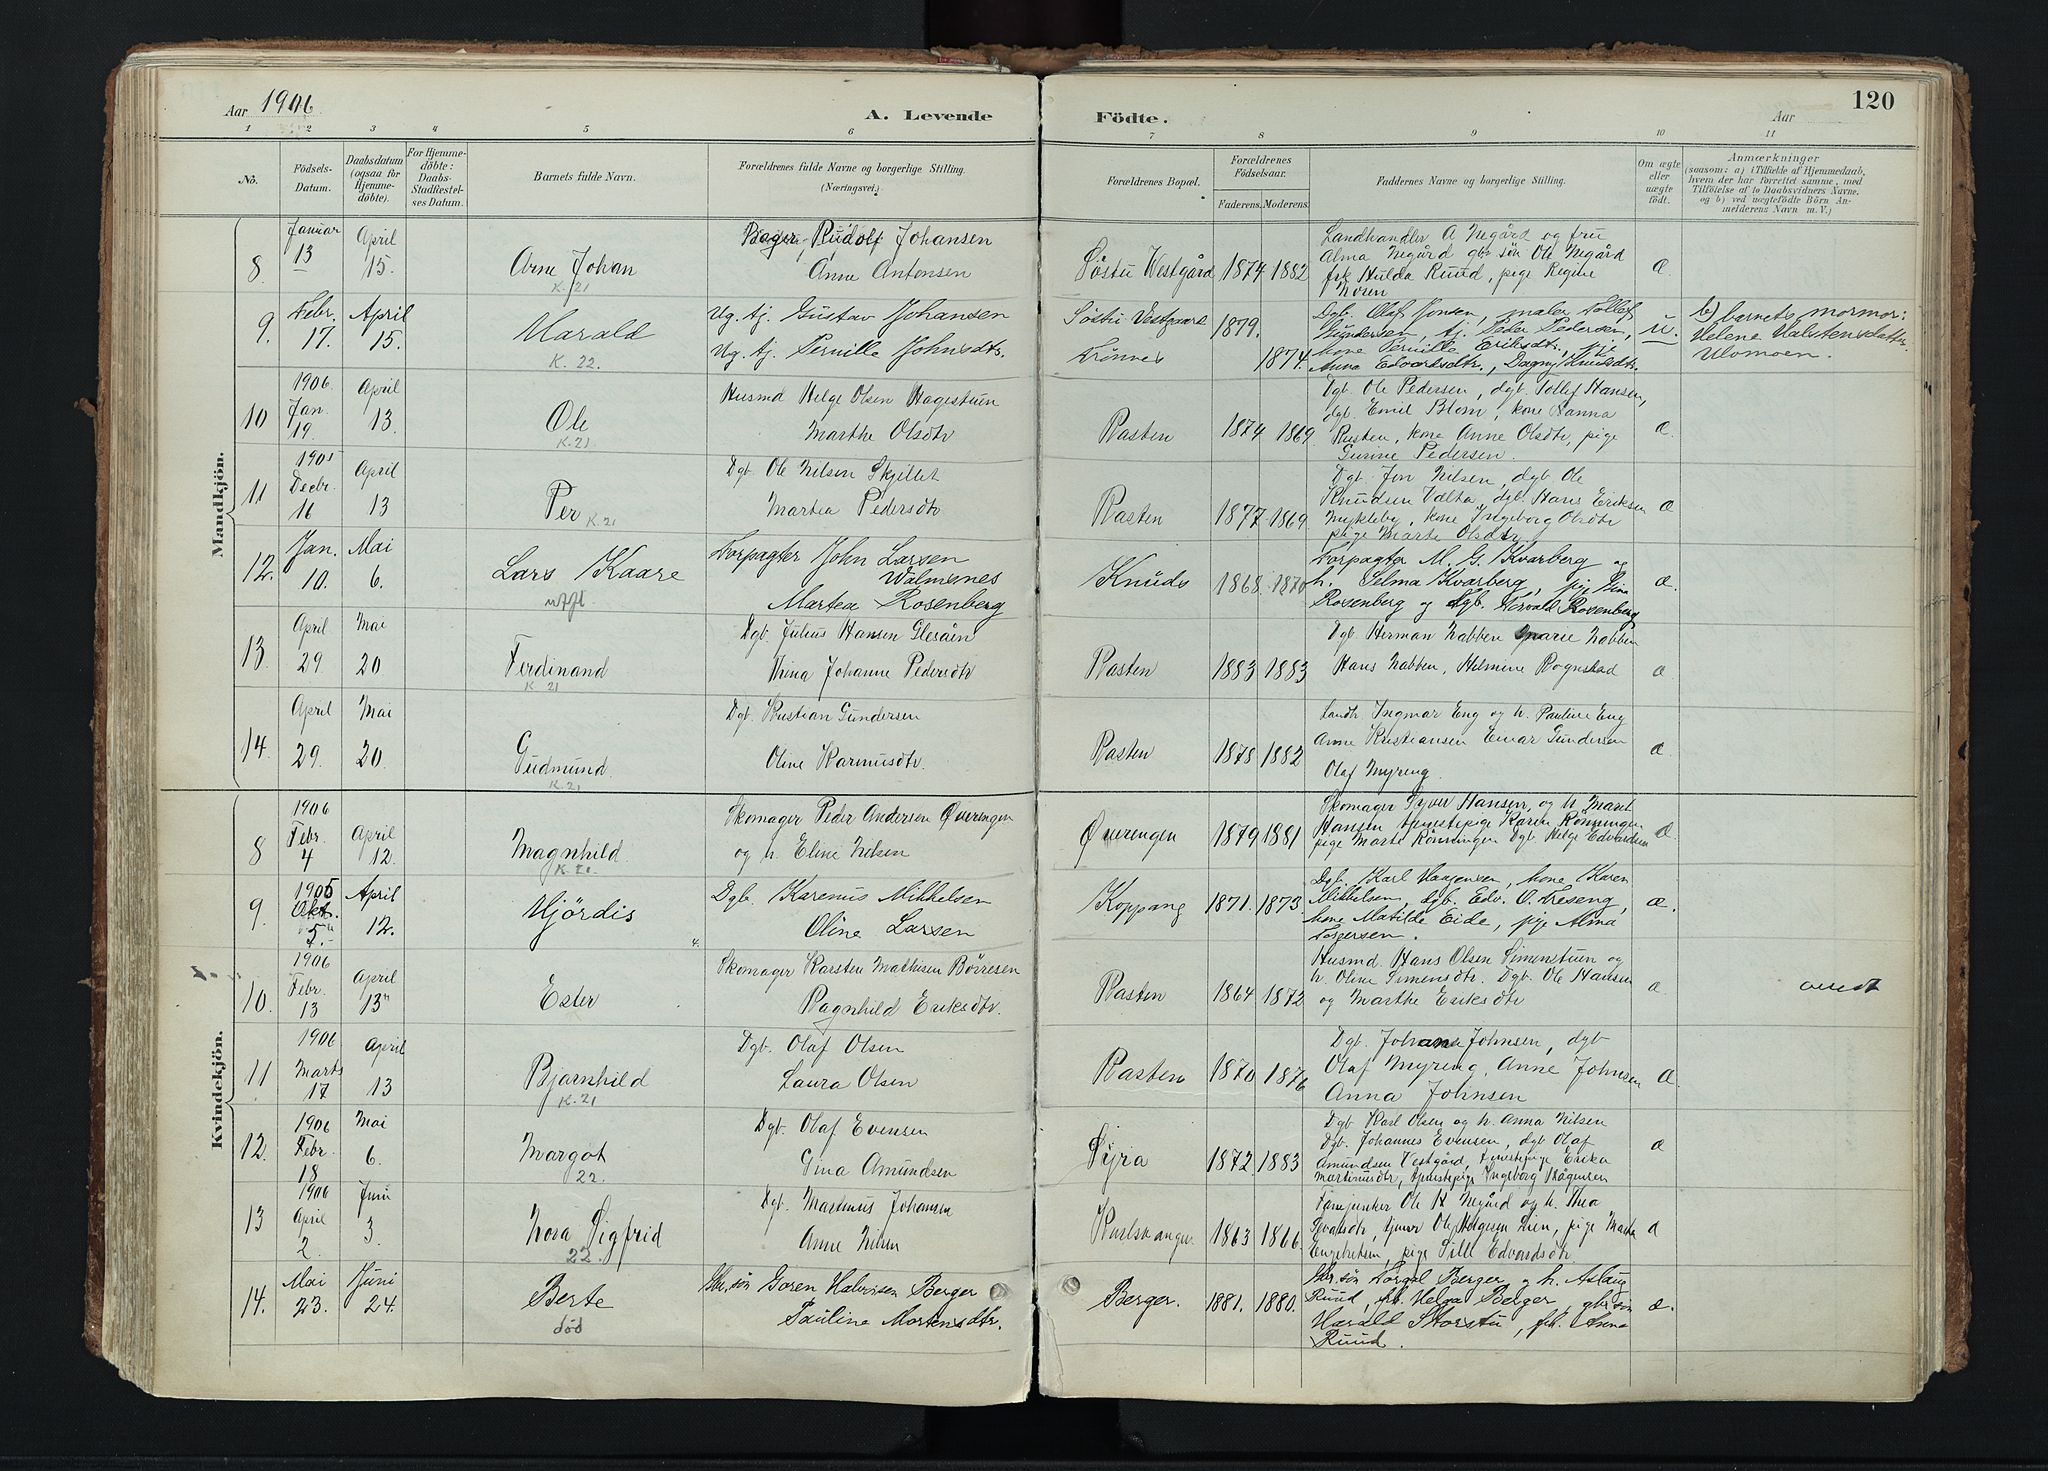 Aar 1906
A. Levende
Födte.
Aar
120
1 2 3 4 5 6 7 8 9 10 11
No.
Födsels-
Datum.
Daabsdatum
(ogsaa for
Hjemme-
döbte).
For Hjemme-
döbte:
Daabs-
Stadfæstel-
ses Datum.
Barnets fulde Navn.
Forældrenes fulde Navne og borgerlige Stilling.
(Næringsvei.)
Forældrenes Bopæl.
Forældrenes
Födselsaar.
Faderens. Moderens.
Faddernes Navne og borgerlige Stilling.
Om ægte
eller
uægte
födt.
Anmærkninger
(saasom: a) i Tilfælde af Hjemmedaab,
hvem der har forrettet samme, med
Tilföielse af to Daabsvidners Navne,
og b) ved uægtefödte Börn An-
melderens Navn m. V.)
Mandkjön.
8 Januar 13 April 15. Arne Johan K. 21
Bager Rudolf Johansen
Anne Antonsen
Söstu Westgård 1874 1882
Landhandler A Negård og fru
Alma Negård gbr sön Ole Negård
frk Hulda Ruud, pige Regine
Moren
æ
9. Febr. 17. April 15. Harald K. 22.
Ug. Aj. Gustav Johansen
Ug. Aj. Pernille Johnsdtr.
Söstu Vestgaard 1879.
Trönnes 1874.
Dgb. Olaf Jonsen, maler Tollef
Gundersen, Aj. Peder Pedersen,
kone Pernille Eriksdtr., pige
Anna Edvardsdtr., Dagny Knudsdtr.
u.
b) barnets mormor:
Helene Halstensdatter
Ulvmoen.
10 1906. Jan. 19. April 13. Ole K. 21
Husmd Helge Olsen Hagestuen
Marthe Olsdtr
Rasten 1874 1869.
Dgb. Ole Pedersen, dgb. Tollef Hansen,
dgb. Emil Blom, kone Hanna
Rusten, kone Anne Olsdtr, pige
Gunine Pedersen.
æ.
11 1905 Decbr. 16 April 13 Per K. 21
Dgb. Ole Nilsen Skjillet
Martea Pedersdtr
Rasten 1877 1869.
Dgb. Jon Nilsen, dgb Ole
Knudsen Valta, dgb. Hans Eriksen
Mykleby, kone Ingeborg Olsdtr
pige Marte Olsdtr.
æ
12. Jan. 10. Mai 6. Lars Kaare utfl.
Forpagter John Larsen
Walmsnes
Martea Rosenberg
Knuds 1868. 1870
Forpagter M. G. Kvarberg og
h. Selma Kvarberg, pige Lina
Rosenberg og dgb. Torvald Rosenberg
æ.
13. April 29. Mai 20 Ferdinand K. 21
Dgb. Julius Hansen Glesåen
Trina Johanne Pedersdtr
Rasten 1883 1883
Dgb. Herman Nabben Marie Nabben
Hans Nabben, Helmine Rognstad
æ
14. April 29. Mai 20. Gudmund. K. 21
Dgb. Kristian Gundersen
Oline Rasmusdtr.
Rasten 1878 1882
Landh. Ingmar Eng og h. Pauline Eng
Anne Kristiansen Einar Gundersen
Olaf Myreng.
æ
Kvindekjön.
8 1906 Febr. 4 April 12. Magnhild. K. 21
Skomager Peder Andersen Överengen
og h. Eline Nilsen
Överengen 1879 1881
Skomager Syver Hansen, og h. Maret
Hansen tjenestepige Karen Rönningen
pige Marte Rönningen Dgb. Helge Edvardsen
æ
9. 1905 Okt. 5. April 12. Hjördis 4.
Dgb. Karenus Mikkelsen
Oline Larsen
Koppang 1871. 1873.
Dgb. Karl Haagensen, kone Karen
Mikkelsen, dgb. Edv. O. Treseng,
kone Matilde Eide, pige Alma
Torgersen.
æ.
10. 1906 Febr. 13 April 13 Ester
Skomager Karsten Mathisen Börresen
Ragnhild Eriksdtr.
Rasten 1864 1872
Husmd. Hans Olsen Simenstuen og
h. Oline Simensdtr. Dgb. Ole Hansen
og Marthe Eriksdtr
æ
11 1906 Marts 17 April 13 Bjarnhild K. 21
Dgb. Olaf Olsen
Laura Olsen
Rasten 1870 1876
Dgb. Johan Johnsen, dgb
Olaf Myreng, Anne Johnsen
Anna Johnsen
æ.
12. 1906 Febr. 18 Mai 6. Margot 22.
Dgb. Olaf Evensen
Gina Amundsen
Sijra 1872. 1883
Dgb. Karl Olsen og h. Anna Nilsen
Dgb. Johannes Evensen, dgb Olaf
Amundsen Vestgård, tjenestepige Erika
Martinusdtr, tjenestepige Ingeborg Hågensen
æ
13 1906 April 2. Juni 3. Nora Sigfrid 22.
Dgb. Martinus Johansen
Anne Nilsen
Karlsvanger 1863 1866.
Fanejunker Ole H Negård og h. Thea
Ivarsdtr, tjener Ole Helgesen Lien, pige Marte
Engebretsen, pige Sille Edvardsdtr.
æ
14. Mai 23. Juni 24. Berte död
Gbr. sön Goren Halvorsen Berger
Pauline Mortensdtr.
Berger. 1881. 1880.
Gbr. sön Torgal Berger og h. Aslaug
Ruud, frk. Helga Berger, gbr sön
Harald Storstu, frk. Anna
Ruud.
æ.